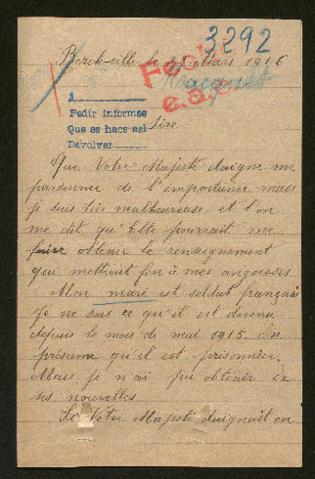 3292
Berck-ville le Mars 1916
Fecha
A
Pedir informes
Que se hace así
Devolver
Sire
Que Votre Majesté daigne me
pardonner de l'importuner mais
je suis très malheureuse et l'on
me dit qu'Elle pourrait me
faire obtenir le renseignement
qui mettrait fin à mes angoisses
Mon mari est soldat français
Je ne sais ce qu'il est devenu
depuis le mois de mai 1915. On
présume qu'il est prisonnier.
Mais je n'ai pu obtenir de
ses nouvelles
Si Votre Majesté daignait en